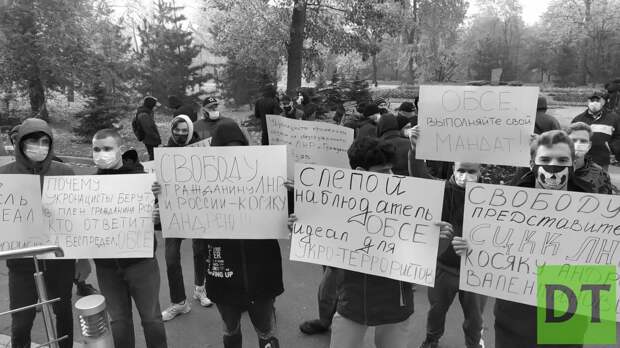 ОБСЕ,
ВЫПОЛНЯЙТЕ СВОЙ
МАНДАТ!
ПОЧЕМУ
УКРОНАЦИСТЫ БЕРУТ
ПЛЕН ГРАЖДАНИНА РФ
КТО ОТВЕТИТ
БЕСПРЕДЕЛ ОБСЕ
СВОБОДУ
ГРАЖДАНИНУ ЛНР
И РОССИИ-КОСЯКУ
АНДРЕЮ!!!
СЛЕПОЙ
наблюдатель
ОБСЕ
идеал для
УКРО-ТЕРРОРИСТОВ
СВОБОДУ
ПРЕДСТАВИТЕ
СЦКК ЛН
КОСЯКУ АНДР
ВАЛЕН
DT